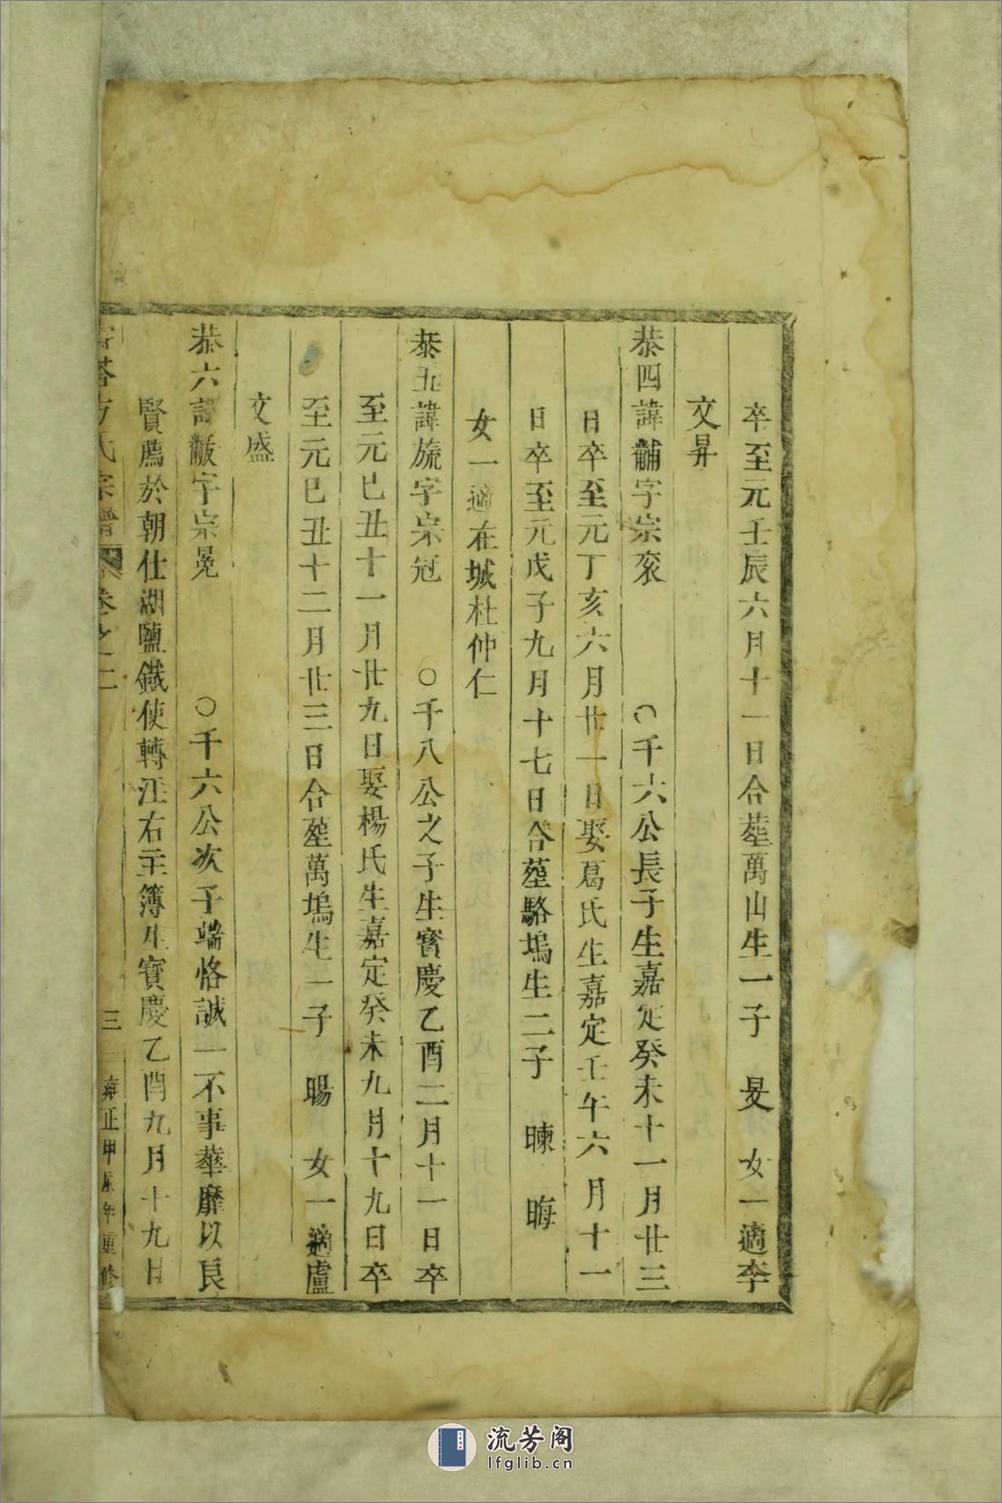 卒至元壬辰六月十一日合塟萬山生一子　旻　女一適李
文昇
恭四諱黼字宗袞　○千六公長子生嘉定癸未十一月廿三
日卒至元丁亥六月廿一日娶葛氏生嘉定壬午六月十一
日卒至元戊子九月十七日合塟駱塢生二子　暕　晦
女一適在城杜仲仁
恭五諱旒字宗冠　○千八公之子生寳慶乙酉二月十一日卒
至元已丑十一月廿九日娶楊氏生嘉定癸未九月十九日卒
至元已丑十二月廿三日合塟萬塢生一子　暘　女一適盧
文盛
恭六諱黻字宗冕　○千六公次子端恪誠一不事華靡以良
賢薦於朝仕湖鹽鐵使轉江右主簿生寳慶乙酉九月十九日
塔方氏宗譜　卷之二　三　雍正甲辰年重修
流芳阁
lfglib.cn